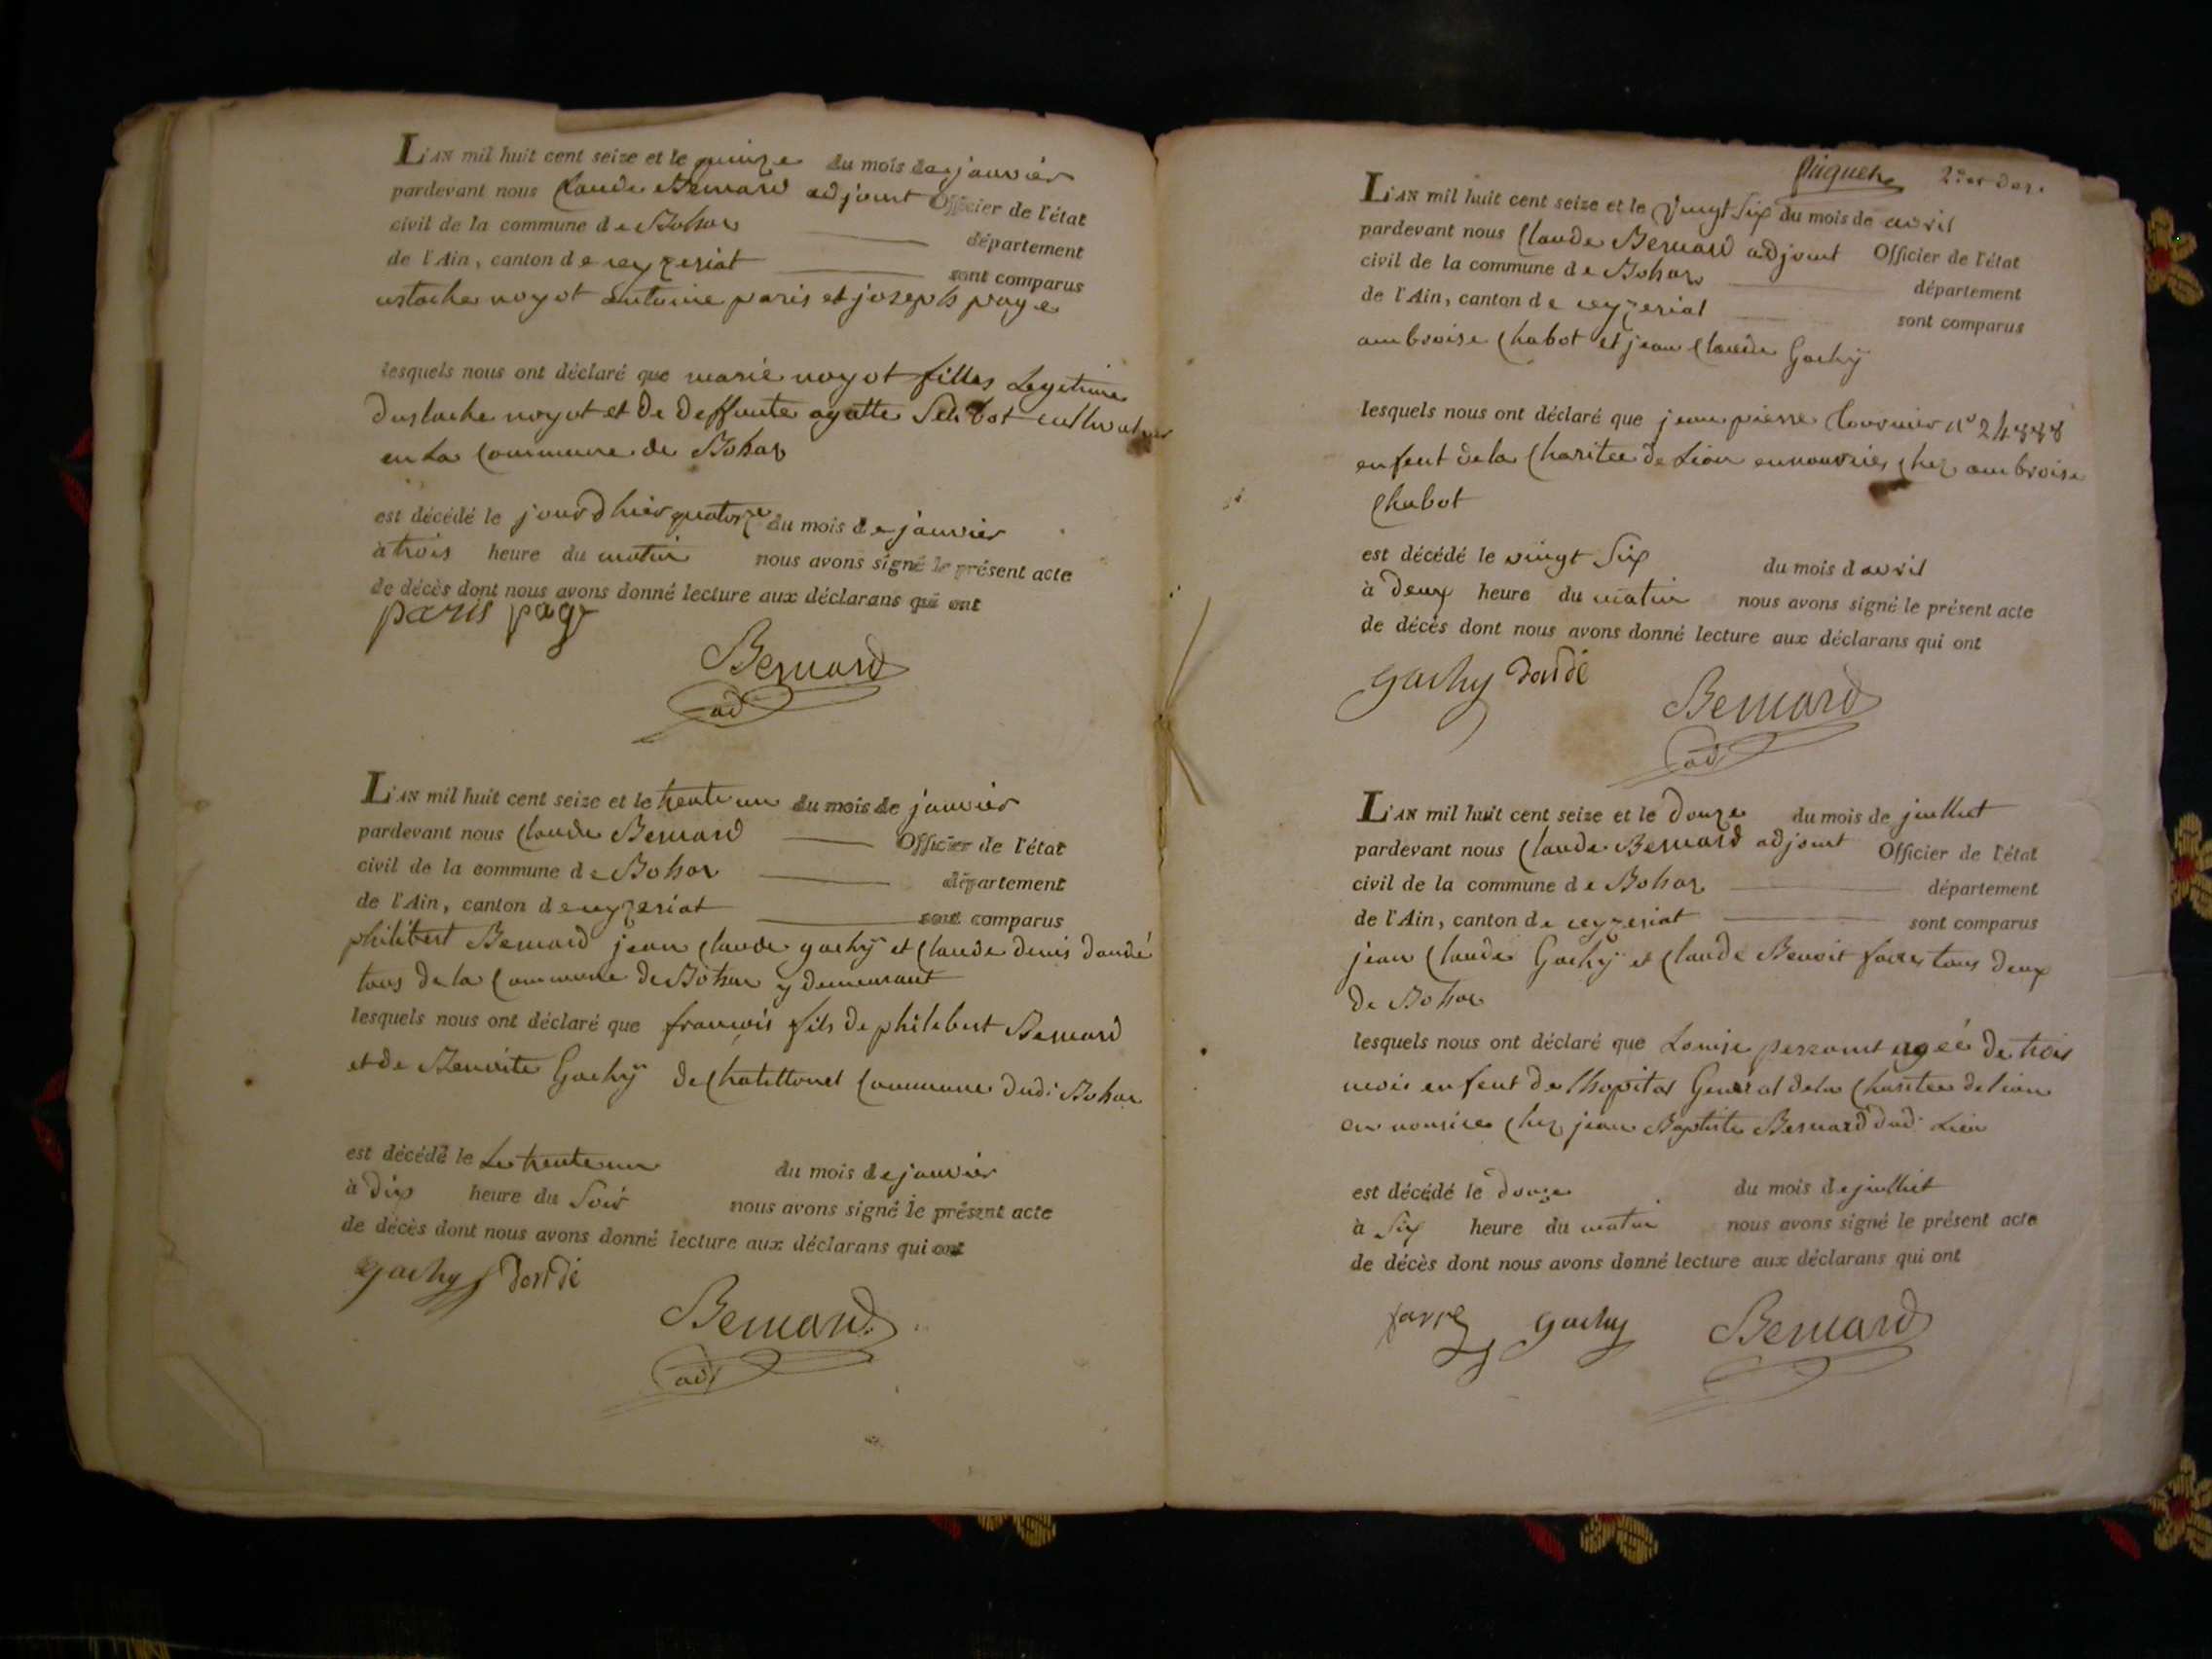 L'AN mil huit cent seize et le quinze du mois de janvier
pardevant nous Claude Bernard adjoint Officier de l'état
civil de la commune de Bohas département
de l'Ain, canton de ceyzeriat sont comparus
ustache noyot antoine paris et joseph page
lesquels nous ont déclaré que marie noyot filles Legetime
dustache noyot et de deffunte agatte cultivateur
en La Commune de Bohas
est décédé le jourdhier quatorze du mois de janvier
à trois heure du matin nous avons signé le présent acte
de décès dont nous avons donné lecture aux déclarans qui ont
paris page
Bernard
ad
L'AN mil huit cent seize et le trente un du mois de janvier
pardevant nous Claude Bernard Officier de l'état
civil de la commune de Bohas département
de l'Ain, canton de ceyzeriat sont comparus
philibert Bernard jean Claude gachÿ et Claude denis dandé
tous de la Commune de Bohas y demeurant
lesquels nous ont déclaré que francois fils de philibert Bernard
et de Benoite Gachÿ de Chatillonet Commune dudi Bohas
est décédé le Le trente un du mois de janvier
à dix heure du Soir nous avons signé le présent acte
de décès dont nous avons donné lecture aux déclarans qui ont
gachy dandé
Bernard
ad
L'AN mil huit cent seize et le vingt Six du mois de avril
pardevant nous Claude Bernard adjoint Officier de l'état
civil de la commune de Bohas département
de l'Ain, canton de ceyzeriat sont comparus
ambroise Chabot et jean Claude Gachÿ
lesquels nous ont déclaré que jean pierre tournier n°
enfent de la Charitee de Lion en nourrice chez ambroise
Chabot
est décédé le vingt Six du mois d avril
à deux heure du matin nous avons signé le présent acte
de décès dont nous avons donné lecture aux déclarans qui ont
gachy dandé
Bernard
ad
L'AN mil huit cent seize et le douze du mois de juilliet
pardevant nous Claude Bernard adjoint Officier de l'état
civil de la commune de Bohas département
de l'Ain, canton de ceyzeriat sont comparus
jean Claude Gachÿ et Claude Benoit tous deux
de Bohas
lesquels nous ont déclaré que Louise agéé de trois
mois enfent de lhopital General de la Charitee de lion
en nourice Chez jean Baptiste Bernard dud. Lieu
est décédé le douze du mois de juilliet
à Six heure du matin nous avons signé le présent acte
de décès dont nous avons donné lecture aux déclarans qui ont
gachy Bernard